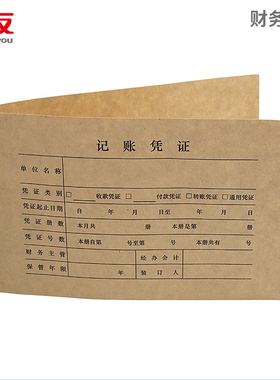 友
you
财务
记账凭证
单位名称
凭证类别 □ 收款凭证 □ 付款凭证 □转账凭证 □通用凭证
凭证起止日期 自 年 月 日至 年 月 日
凭证册数 本月共 册 本册是第 册
凭证号数 本册自第 号至第 号 本册共有 号
财务主管 经办会计
保管年限 年 装订人